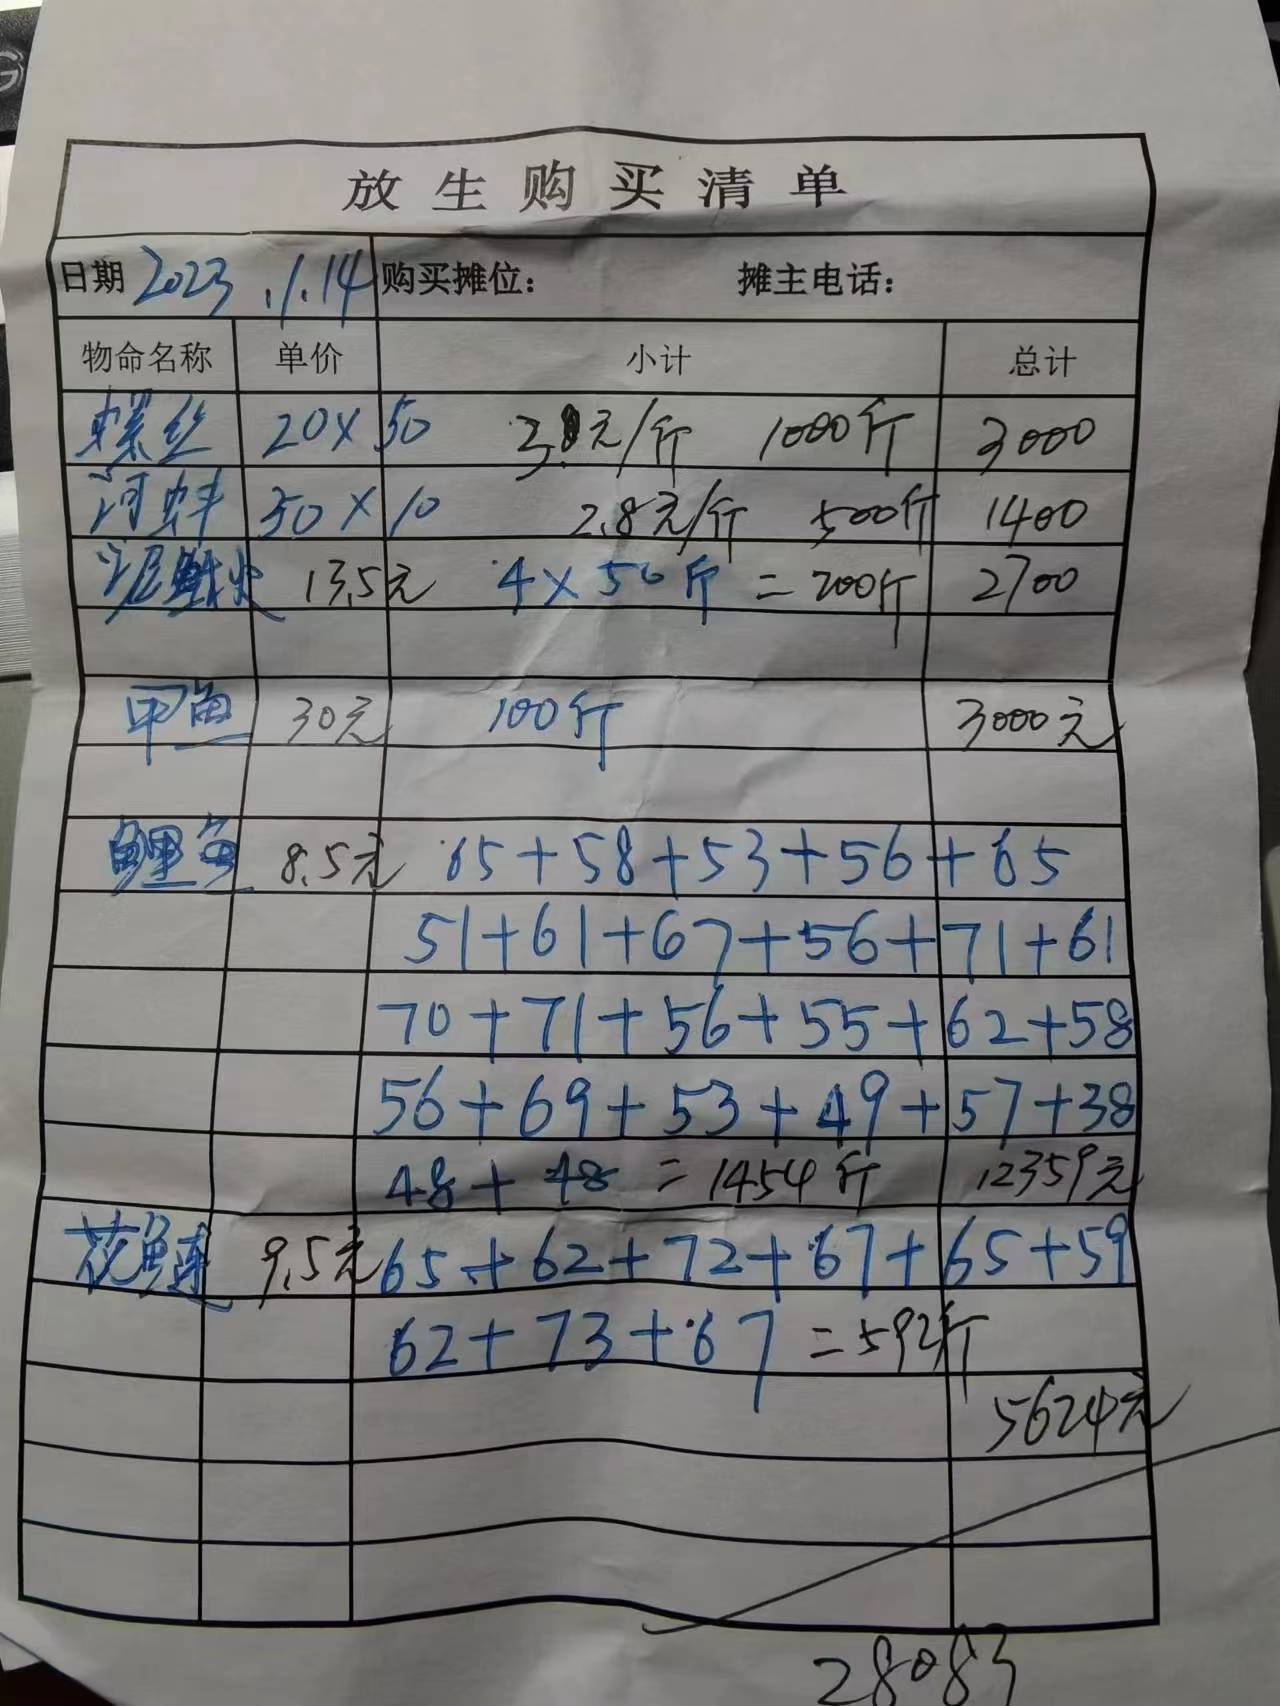 放生购买清单
日期 2023.1.14 购买摊位： 摊主电话：
物命名称 单价 小计 总计
螺丝 20×50 3元/斤 1000斤 3000
河蚌 50×10 2.8元/斤 500斤 1400
泥鳅 13.5元 4×50斤=200斤 2700
甲鱼 30元 100斤 3000元
鲤鱼 8.5元 65+58+53+56+65
51+61+67+56+71+61
70+71+56+55+62+58
56+69+53+49+57+38
48+48=1454斤 12359元
花鲢 9.5元 65+62+72+67+65+59
62+73+67=592斤
5624元
28083